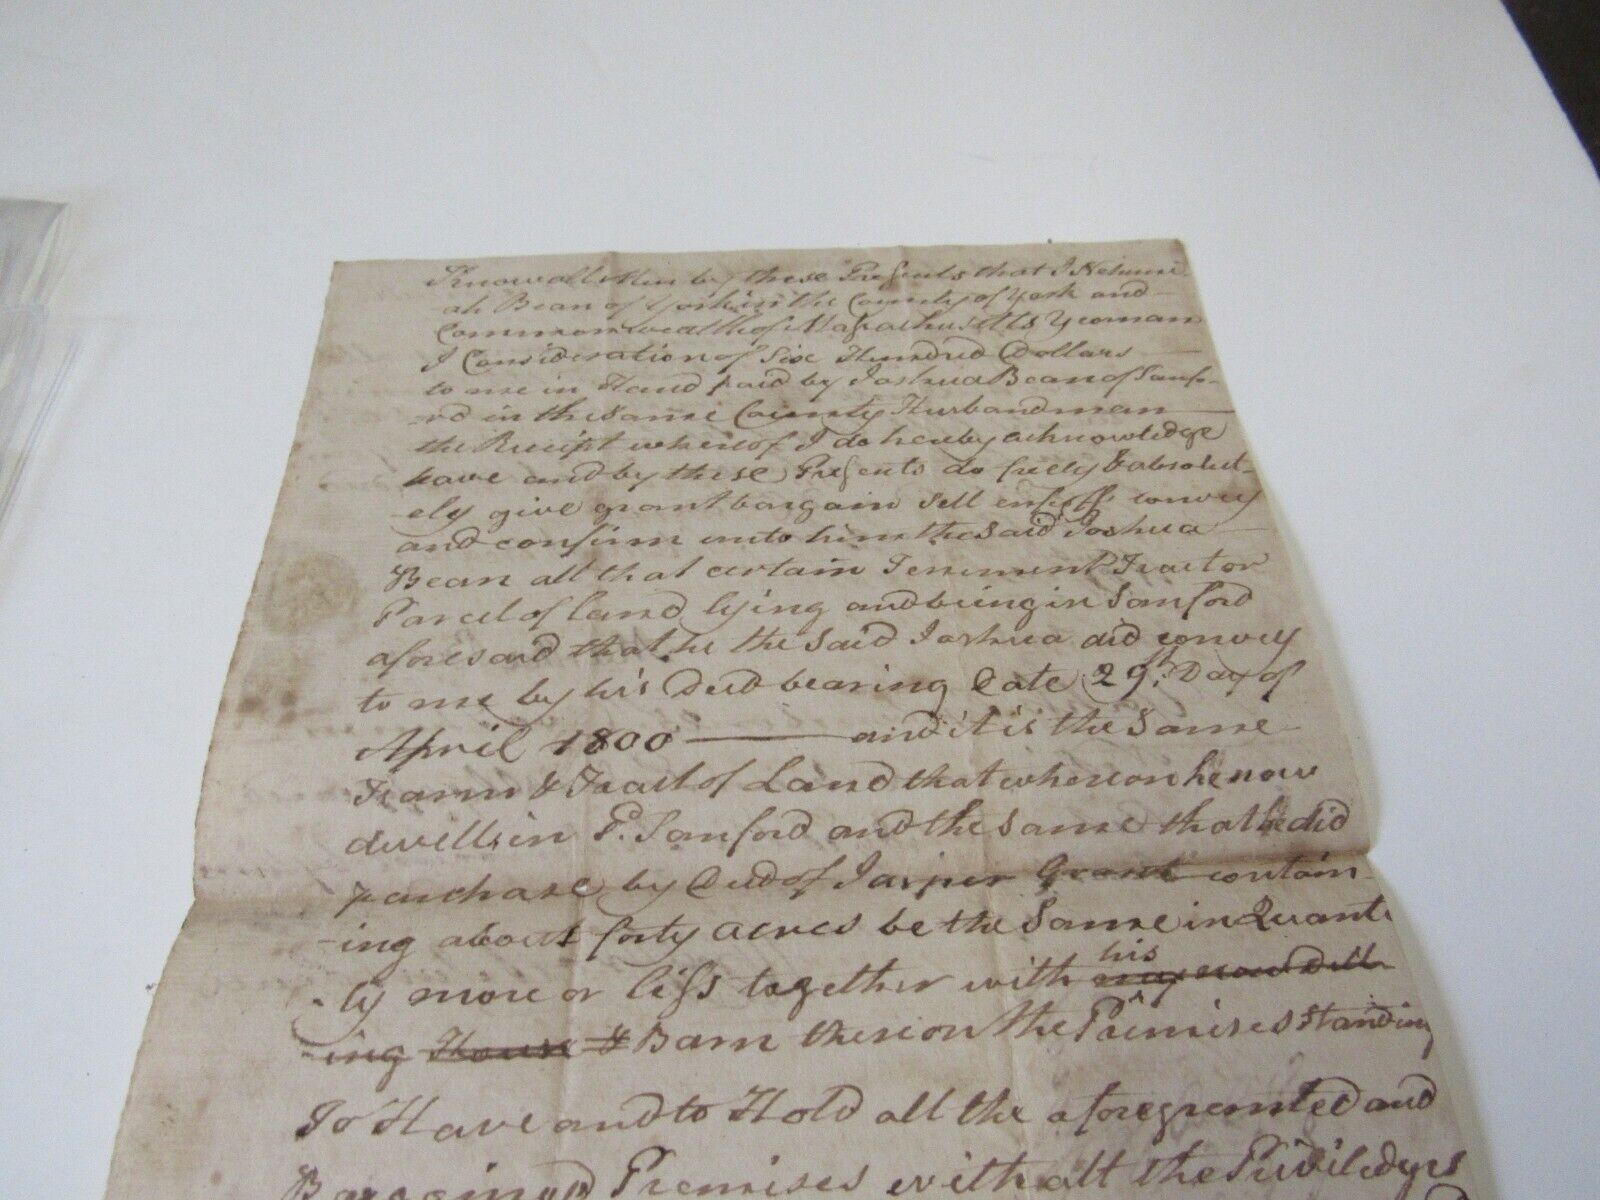 Know all Men by these Presents that I Nehemi
ah Bean of York in the County of York and
Commonwealth of Massachusetts Yeoman
I Consideration of Six Hundred Dollars
to me in Hand paid by Joshua Bean of Sanfo-
-rd in the same County Husbandman
the Receipt whereof I do hereby acknowledge
have and by these Presents do freely & absolut-
-ely give grant bargain sell enfeoff convey
and confirm unto him the said Joshua
Bean all that certain Teniment Tract or
Parcel of land lying and being in Sanford
aforesaid that he the said Joshua did convey
to me by his Deed bearing Date 29th. Day of
April 1800 and it is the same
Farm & Tract of Land that whereon he now
dwells in P. Sanford and the same that he did
purchase by Deed of Jasper Grant contain
-ing about forty acres be the same in Quanti
-ty more or less together with his my now Dell
ing House & Barn thereon the Premises standing
To Have and to Hold all the aforegranted and
Bargained Premises with all the Priviledges